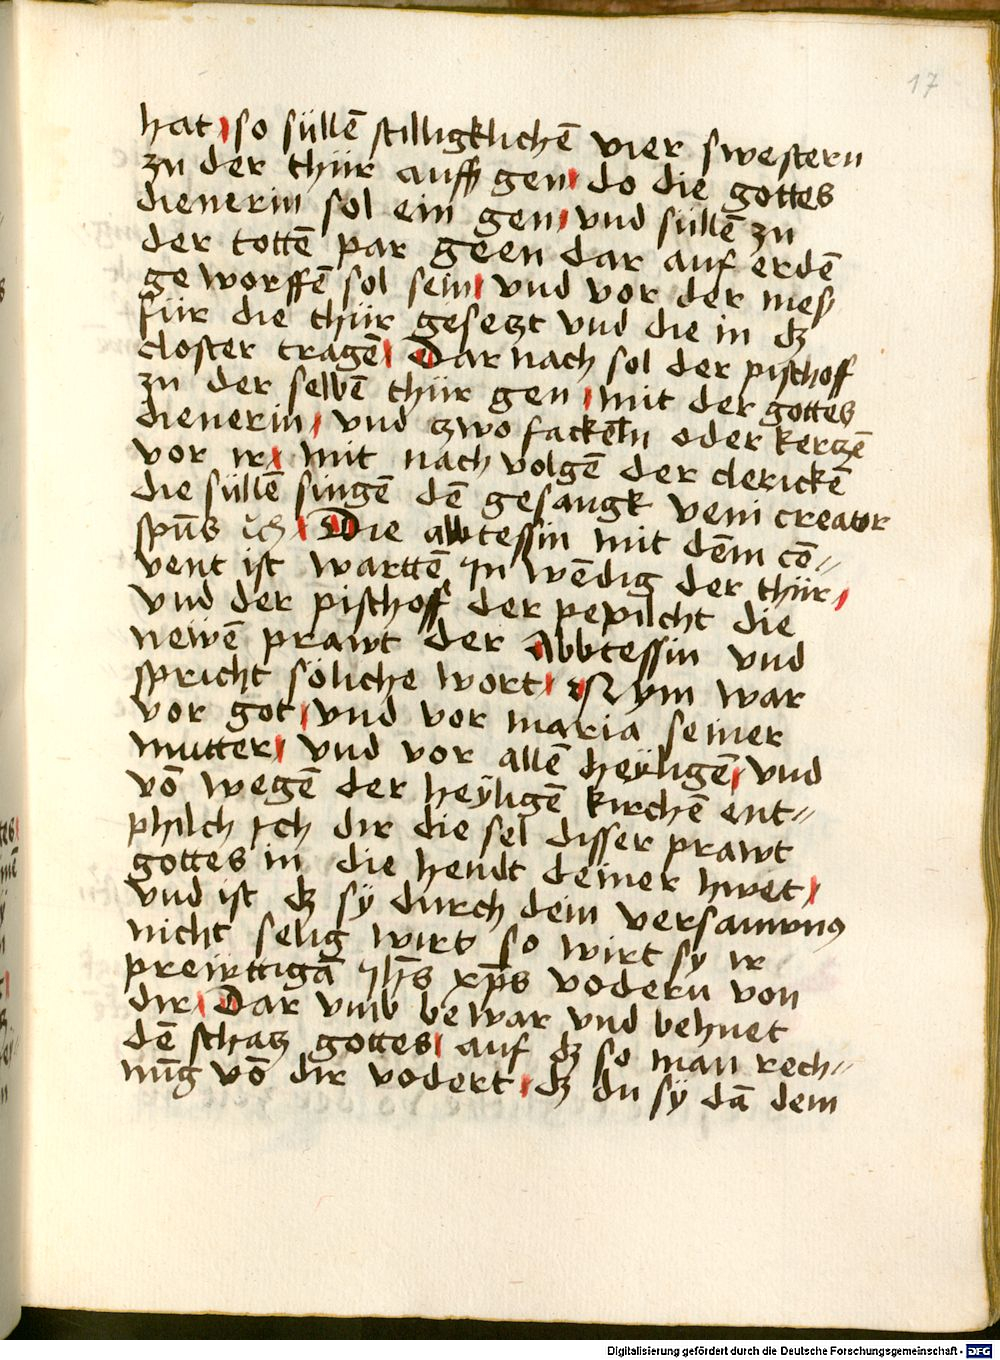 17
hat so süllē stilligklichē vier swestern
zu der thür auff gen do die gottes
dienerin sol ein gen vnd süllē zu
der tottē par geen dar auf erdē
ge worffē sol sein vnd vor der mesß
für die thür gesetzt vnd die in dz
closter tragē Dar nach sol der pischoff
zu der selbē thür gen mit der gottes
dienerin vnd zwo fackeln oder kerzē
vor ir mit nach volgē der clerickē
die süllē singē dē gesangk veni creator
spūs Die abtessin mit dēm cō⸗
vent ist warttē Jn wēdig der thür
vnd der pischoff der pepilcht die
newē prawt der Abbtessin vnd
spricht söliche wort Nym war
vor got vnd vor maria seiner
mutter vnd vor allē heyligē vnd
vō wegē der heÿligē kirchē ent⸗
philch ich dir die sel disser prawt
gottes in die hendt deiner hwet
vnd ist dz sÿ durch dein versawmnꝰ
nicht selig wirt so wirt sy ir
preüttigā Jhs xp̄s vodern von
dir Dar vmb be war vnd behuet
dē schatz gottes auf dz so man rech⸗
nūg vō dir vodert dz du sÿ dā dem
Digitalisierung gefördert durch die Deutsche Forschungsgemeinschaft - DFG